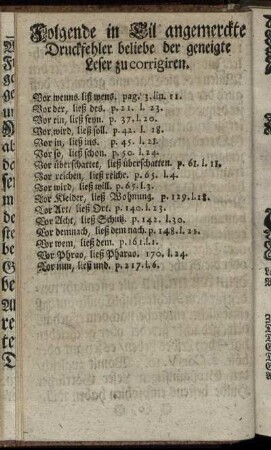 Folgende in Eil angemerckte
Druckfehler beliebe der geneigte
Leser zu corrigiren.
Vor wenns. ließ wens. pag. 3. lin. 11.
Vor der, ließ des. p. 21. l. 23.
Vor ein, ließ seyn. p. 37. l. 20.
Vor wird, ließ soll. p. 42. l. 18.
Vor in, ließ ins. p. 45. l. 21.
Vor so, ließ schon. p. 50. l. 24.
Vor überschattet, ließ überschatten. p. 61. l. 11.
Vor reichen, ließ reiche. p. 65. l. 4.
Vor wird, ließ will. p. 65. l. 3.
Vor Kleider, ließ Wohnung. p. 129. l. 18.
Vor Art, ließ Ort. p. 140. l. 23.
Vor Acht, ließ Schutz. p. 142. l. 30.
Vor demnach, ließ dem nach. p. 148. l. 22.
Vor wem, ließ dem. p. 161. l. 1.
Vor Phrao, ließ Pharao. 170. l. 24.
Vor nun, ließ und. p. 217. l. 6.